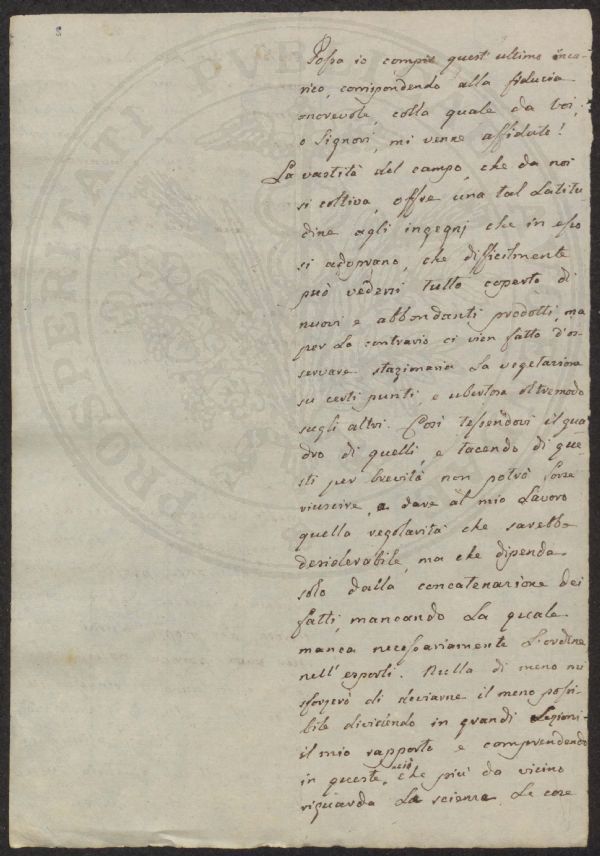 Possa io compir quest'ultimo inca-
rico, corrispondendo alla fiducia
onorevole, colla quale da Voi,
o Signori, mi venne affidato!
La vastità del campo, che da noi
si coltiva, offre una tal Latitu-
dine agli ingegni che in esso
si adoprano, che difficilmente
può vedersi tutto coperto di
nuovi e abbondanti prodotti, ma
per Lo contrario ci vien fatto d'os-
servare stazionaria La vegetazione
su certi punti, e ubertosa oltremodo
sugli altri. Così tessendovi il qua-
dro di quelli, e tacendo di que-
sti per brevità non potrò forse
riuscire, a dare al mio Lavoro
quella regolarità che sarebbe
desiderabile, ma che dipende
solo dalla concatenazione dei
fatti, mancando La quale
manca necessariamente L'ordine
nell'esporli. Nulla di meno mi
sforzerò di deviarne il meno possi-
bile dividendo in grandi Sezioni
il mio rapporto e comprendendo
in queste, ciò che più da vicino
riguarda La scienza, Le cose
PROSPERITATI PVBLICAE